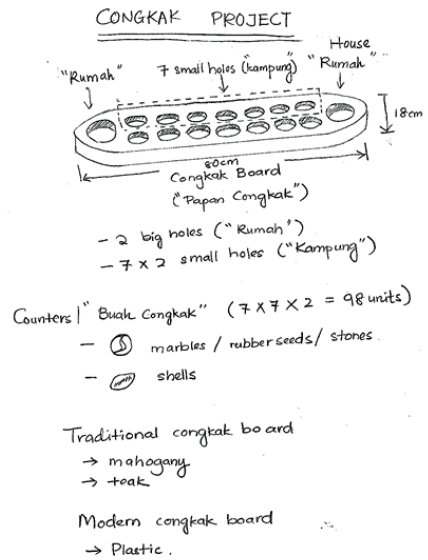 CONGKAK PROJECT
House
7 small holes (kampung)
"Rumah"
"Rumah"
18cm
80cm
Congkak Board
("Papan Congkak")
- 2 big holes ("Rumah")
- 7 x 2 small holes ("Kampung")
Counters / "Buah Congkak" (7 x 7 x 2 = 98 units)
- marbles / rubber seeds / stones.
- shells
Traditional congkak board
→ mahogany
→ teak
Modern congkak board
→ Plastic.